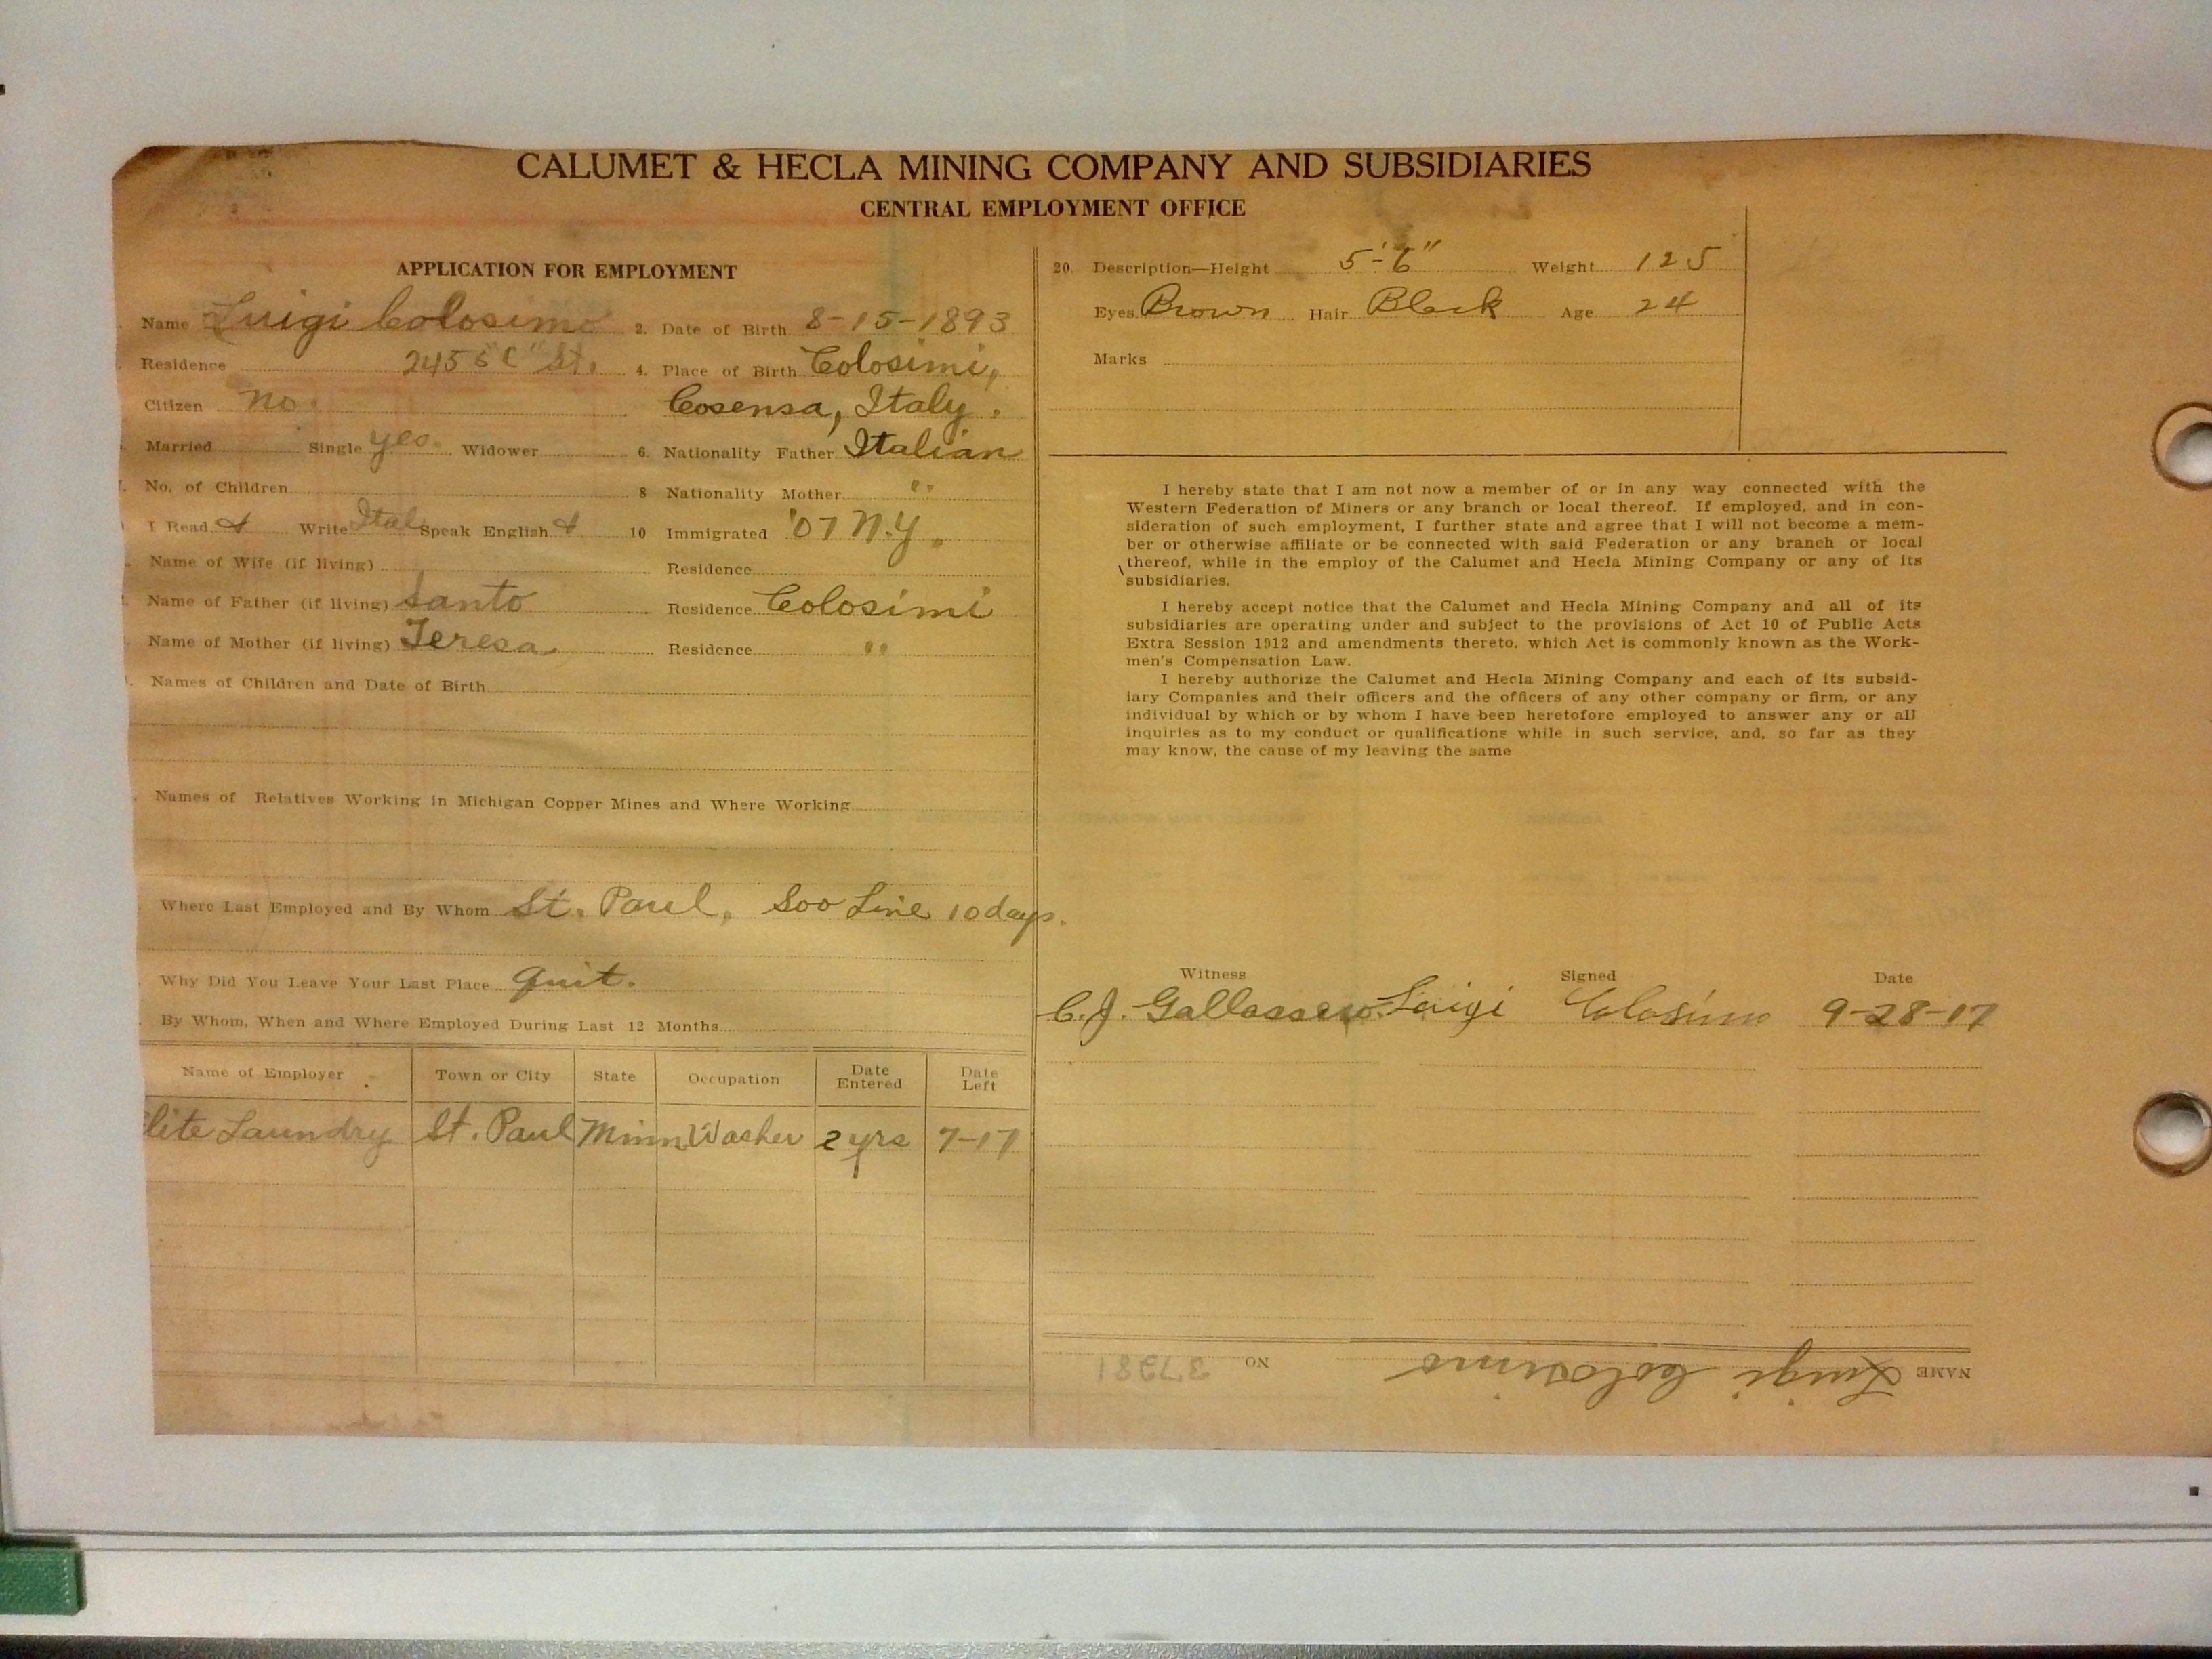 CALUMET & HECLA MINING COMPANY AND SUBSIDIARIES
CENTRAL EMPLOYMENT OFFICE
APPLICATION FOR EMPLOYMENT
Name Luigi Colosimo 2. Date of Birth 8-15-1893
Residence 2455 "C" St. 4. Place of Birth Colosimi,
Citizen no. Cosensa, Italy.
Married Single yes. Widower 6. Nationality Father Italian
No. of Children 8 Nationality Mother " "
I Read & Write Ital Speak English & 10 Immigrated '07 N.Y.
Name of Wife (if living) Residence
Name of Father (if living) Santo Residence Colosimi
Name of Mother (if living) Teresa Residence " "
Names of Children and Date of Birth
Names of Relatives Working in Michigan Copper Mines and Where Working
Where Last Employed and By Whom St. Paul, Soo Line 10 days.
Why Did You Leave Your Last Place quit.
By Whom, When and Where Employed During Last 12 Months
Name of Employer Town or City State Occupation Date Entered Date Left
lite Laundry St. Paul Minn Washer 2 yrs 7-17
20. Description—Height 5'-6" Weight 125
Eyes Brown Hair Black Age 24
Marks
I hereby state that I am not now a member of or in any way connected with the
Western Federation of Miners or any branch or local thereof. If employed, and in con-
sideration of such employment, I further state and agree that I will not become a mem-
ber or otherwise affiliate or be connected with said Federation or any branch or local
thereof, while in the employ of the Calumet and Hecla Mining Company or any of its
subsidiaries.
I hereby accept notice that the Calumet and Hecla Mining Company and all of its
subsidiaries are operating under and subject to the provisions of Act 10 of Public Acts
Extra Session 1912 and amendments thereto, which Act is commonly known as the Work-
men's Compensation Law.
I hereby authorize the Calumet and Hecla Mining Company and each of its subsid-
iary Companies and their officers and the officers of any other company or firm, or any
individual by which or by whom I have been heretofore employed to answer any or all
inquiries as to my conduct or qualifications while in such service, and, so far as they
may know, the cause of my leaving the same
Witness Signed Date
C.J. Luigi Colosimo 9-28-17
NAME Luigi Colosimo NO 37381